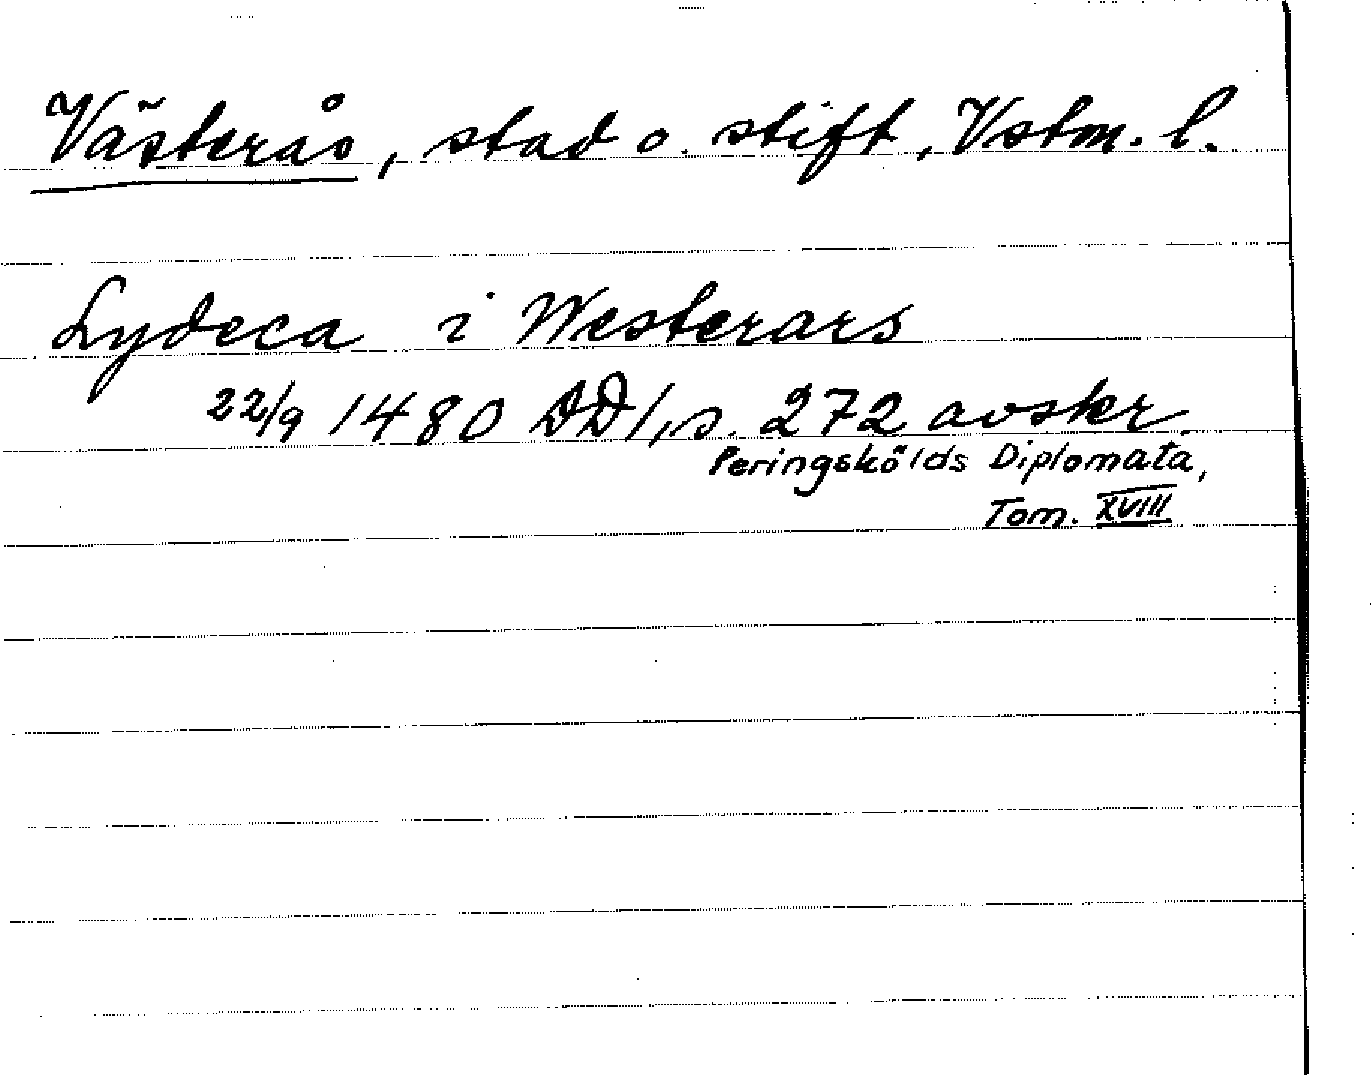 Västerås, stad o. stift, Vstm. l.
Lydeca i Westerars
22/9 1480 DD1, s. 272 avskr.
Peringskölds Diplomata,
Tom. XVIII